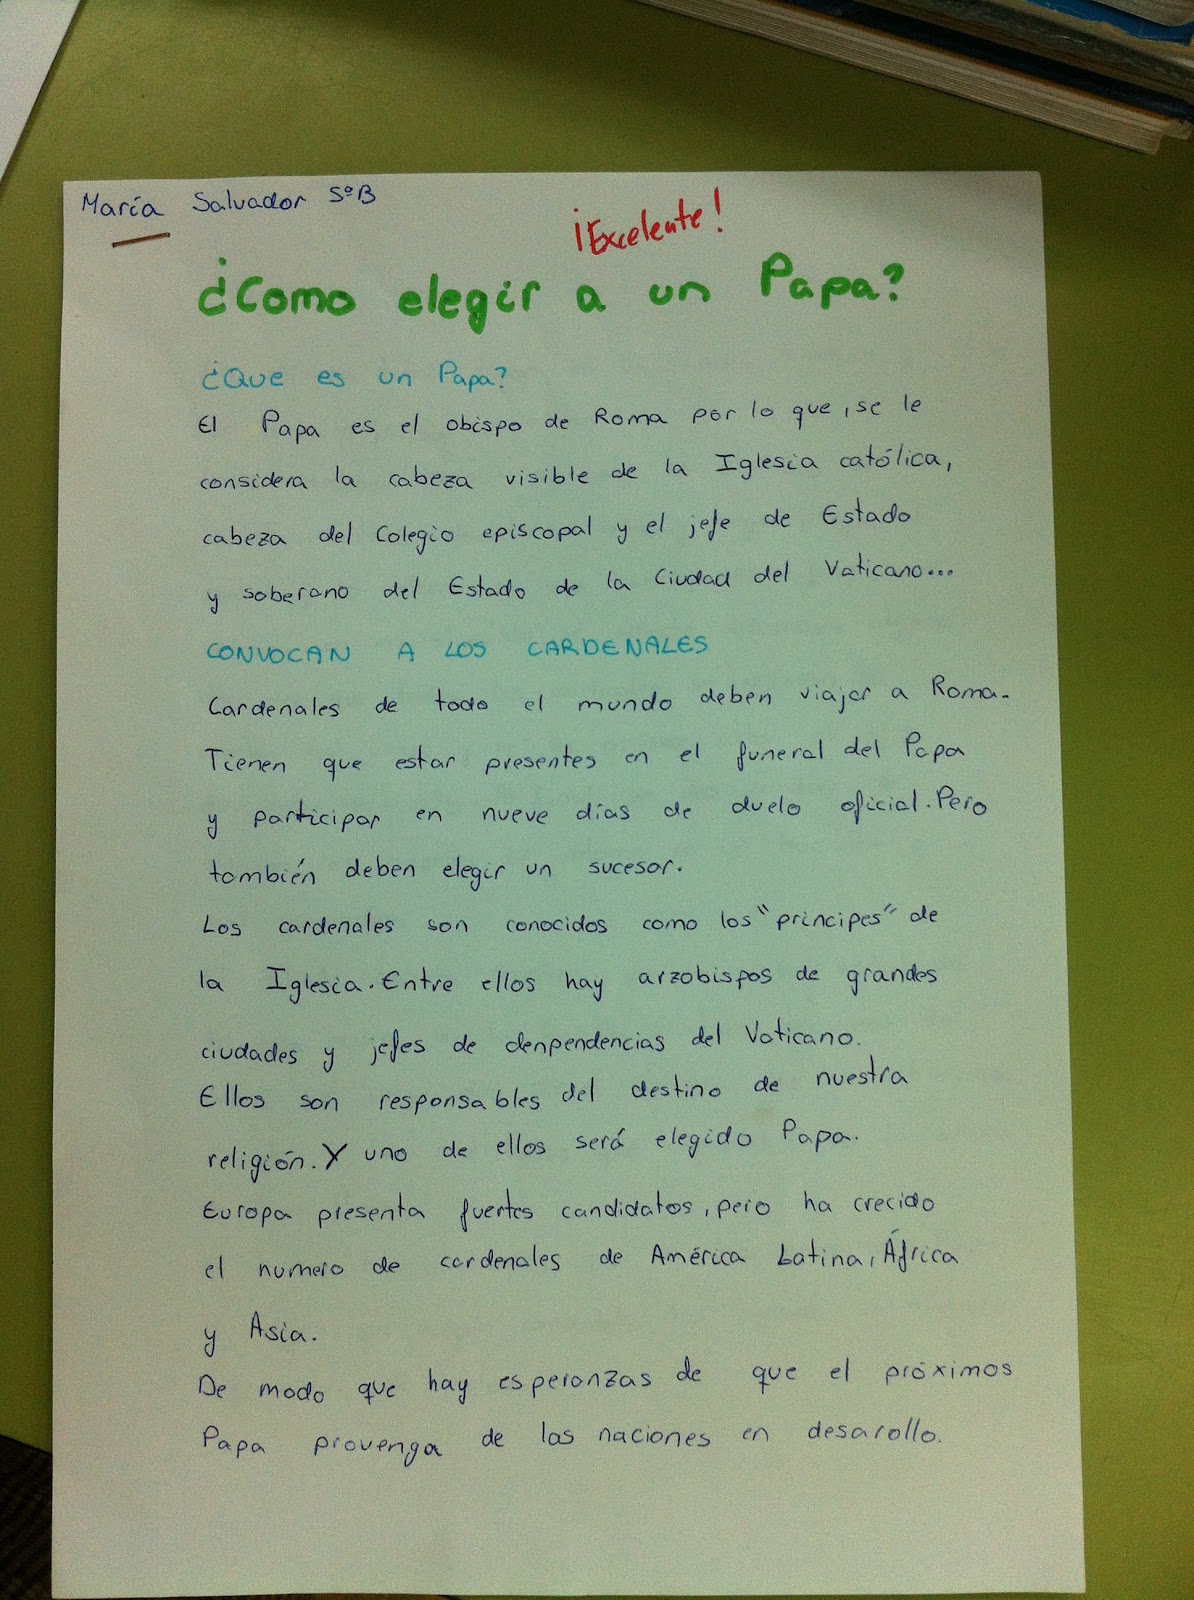 María Salvador 5ºB
¡Excelente!
¿Como elegir a un Papa?
¿Que es un Papa?
El Papa es el obispo de Roma por lo que, se le
considera la cabeza visible de la Iglesia católica,
cabeza del Colegio episcopal y el jefe de Estado
y soberano del Estado de la Ciudad del Vaticano...
CONVOCAN A LOS CARDENALES
Cardenales de todo el mundo deben viajar a Roma.
Tienen que estar presentes en el funeral del Papa
y participar en nueve días de duelo oficial. Pero
también deben elegir un sucesor.
Los cardenales son conocidos como los "principes" de
la Iglesia. Entre ellos hay arzobispos de grandes
ciudades y jefes de denpendencias del Vaticano.
Ellos son responsables del destino de nuestra
religión. Y uno de ellos será elegido Papa.
Europa presenta fuertes candidatos, pero ha crecido
el numero de cardenales de América Latina, África
y Asia.
De modo que hay esperanzas de que el próximos
Papa provenga de las naciones en desarollo.